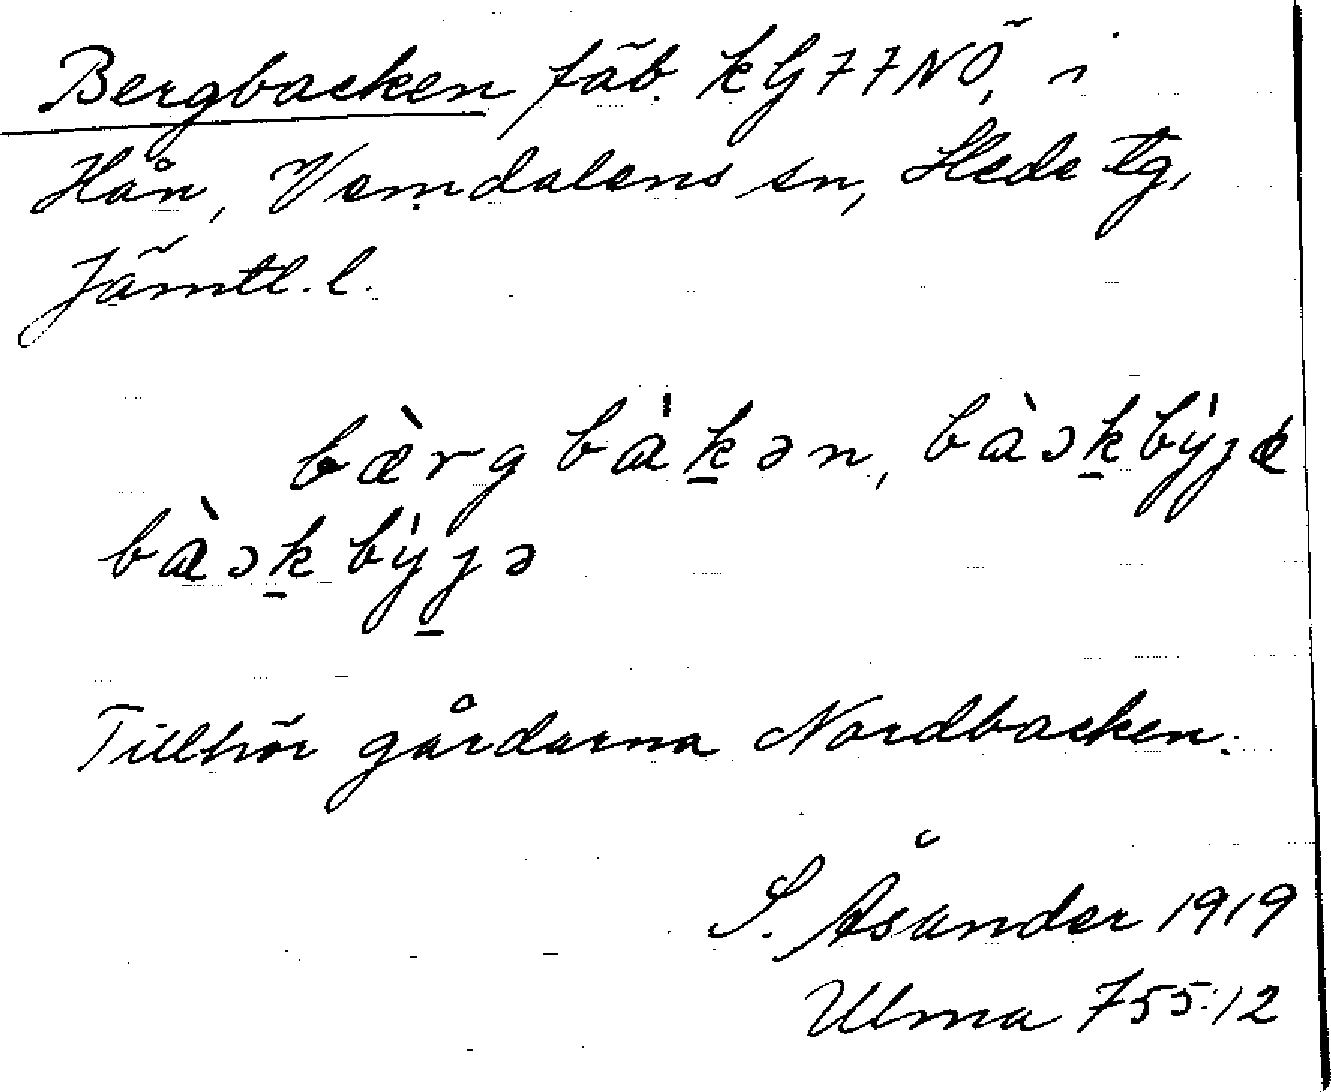 Bergbacken fäb. kG77NÖ, i
Hån, Vemdalens sn, Hede tg,
Jämtl. l.
bæ̀rgbàk̠ən, bàək̠by̍jæ
bàək̠by̍j̠ə
Tillhör gårdarna Nordbacken.
S. Åsander 1919
Ulma 755:12